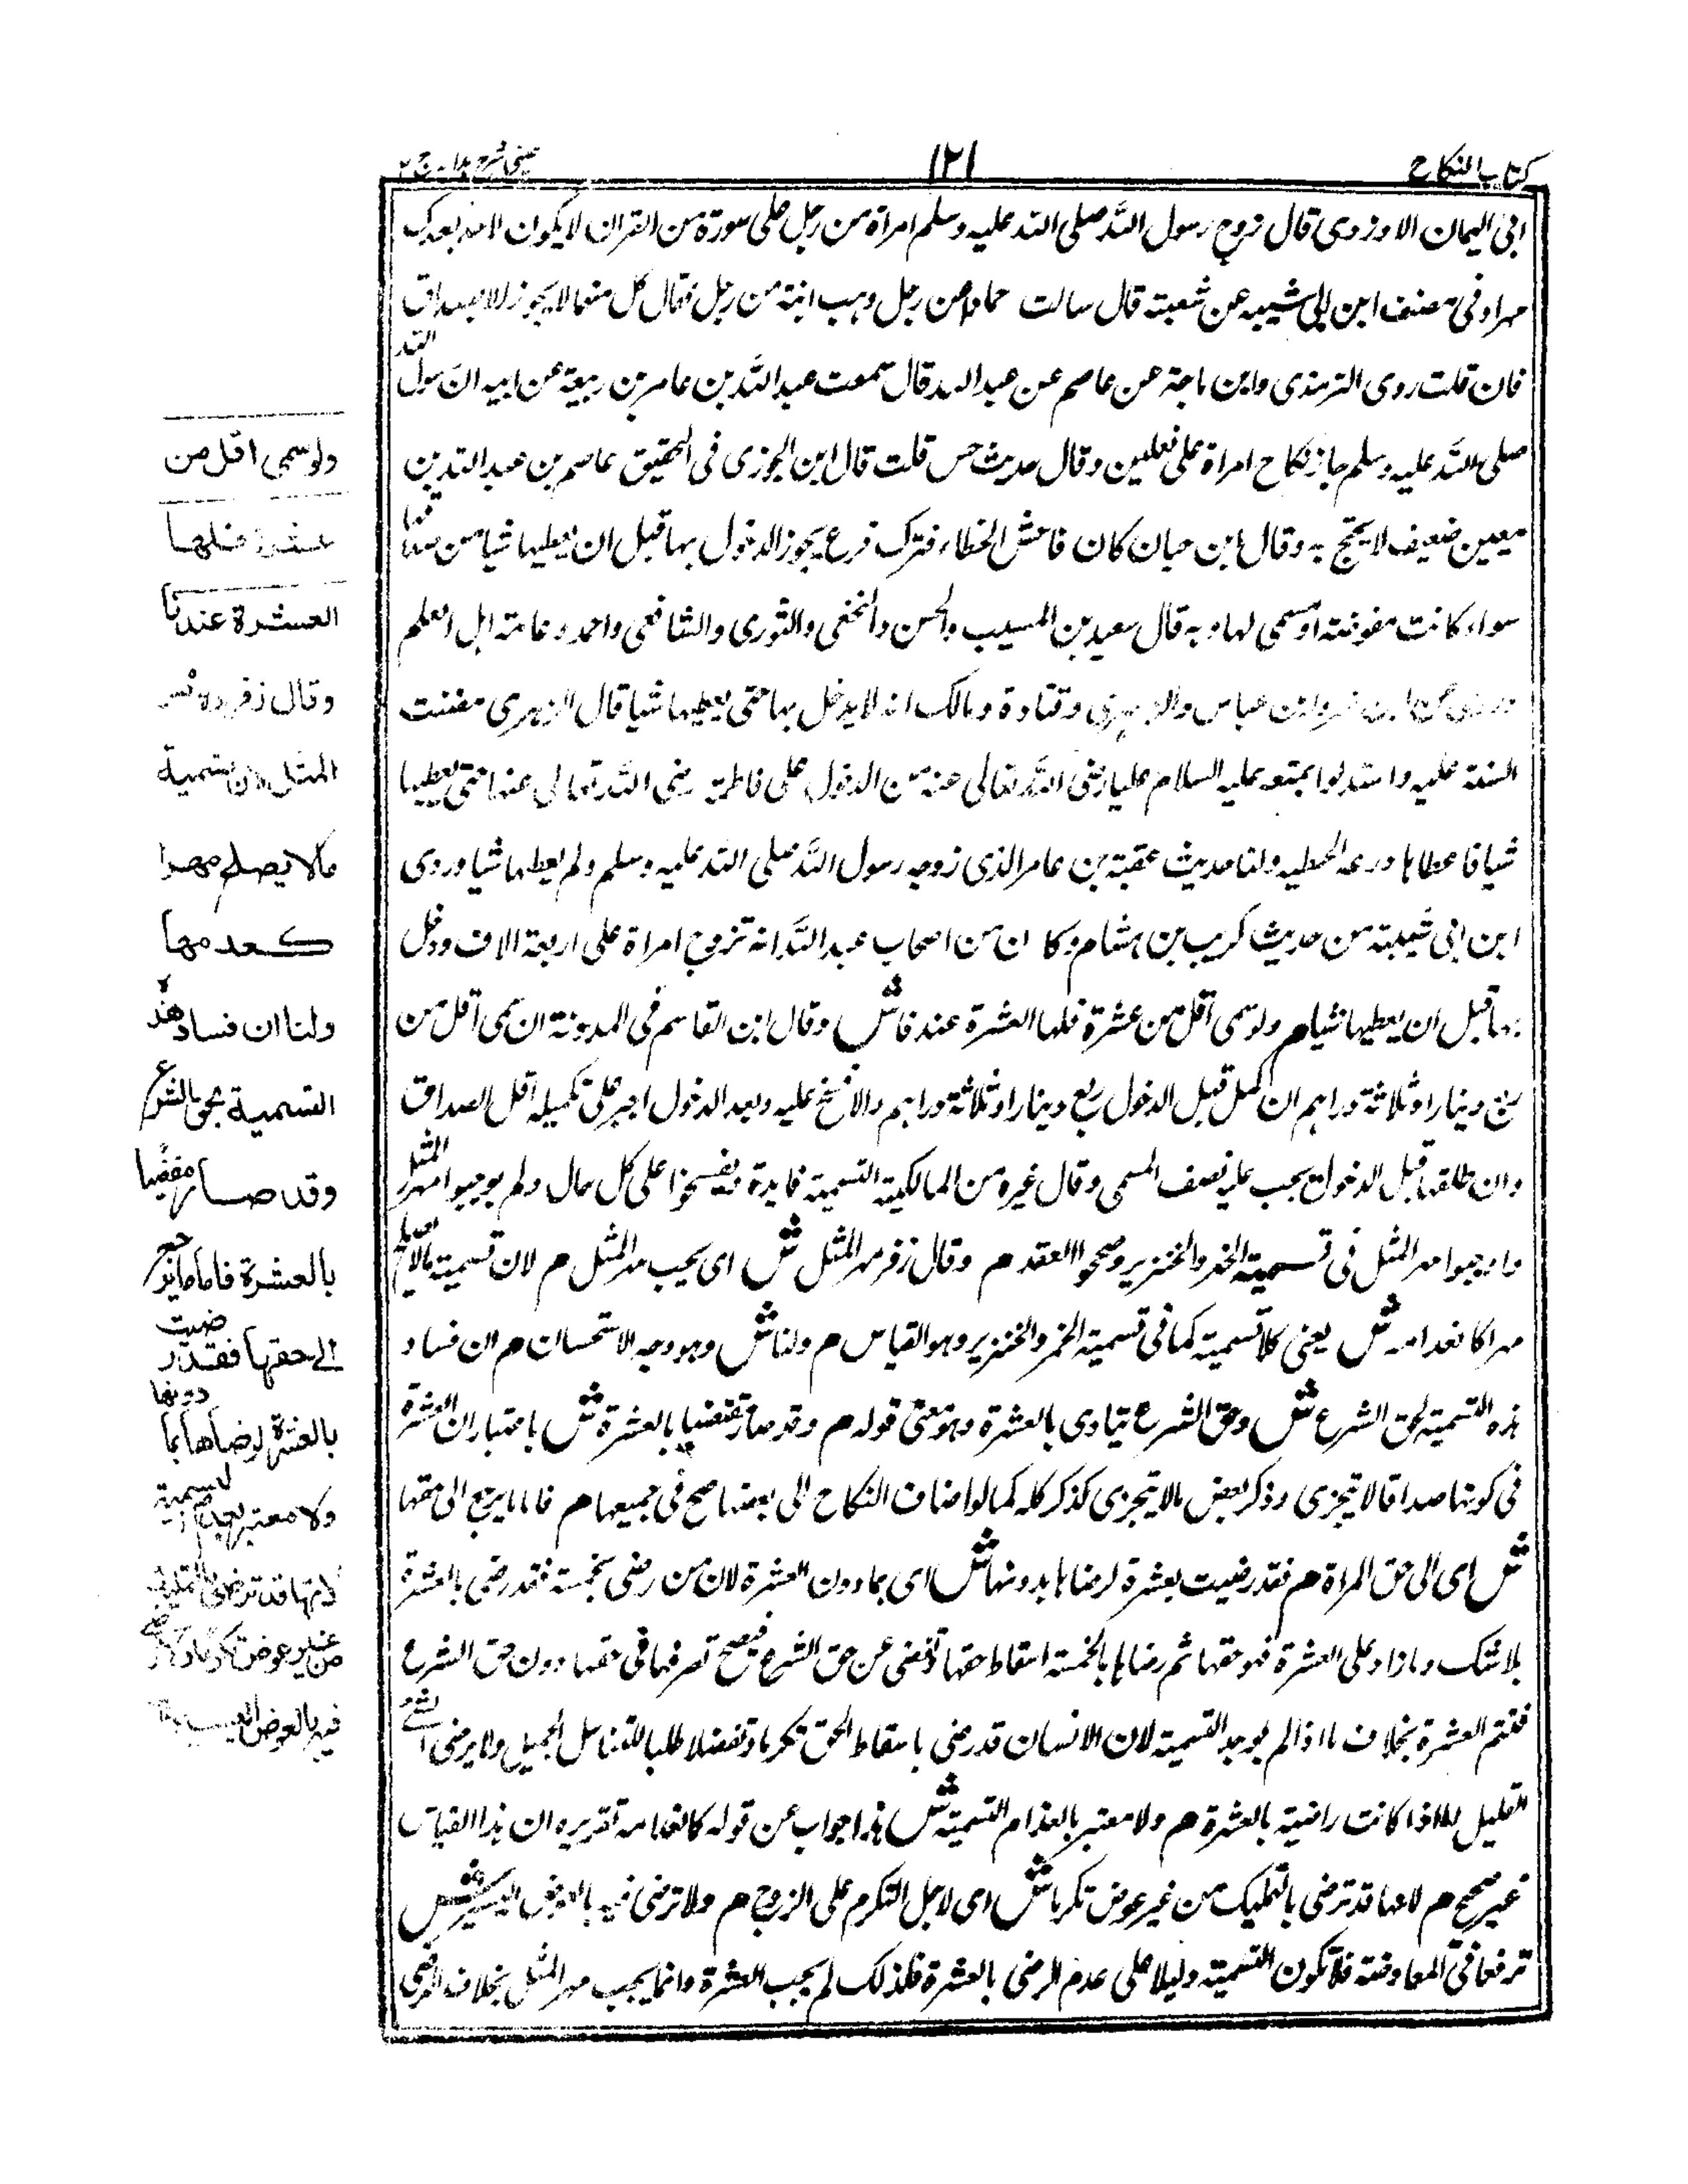 كتاب النكاح
١٢١
عينى شرح هدايه ج ٢
ابى اليمان الاوزوى قال زوج رسول الله صلى الله عليه وسلم امراة من رجل على سورة من القران لا يكون لاحد بعدك
مهرا وفى مصنف ابن ابى شيبه عن شعبة قال سالت حمادا عن رجل وهب ابنة من رجل فقال كل منهما لا يجوز الا بصداق
فان قلت روى الترمذى وابن ماجة عن عاصم عن عبد الله قال سمعت عبد الله بن عامر بن ربيعة عن ابيه ان رسول الله
صلى الله عليه وسلم جاز نكاح امراة على نعلين وقال حديث حسن قلت قال ابن الجوزى فى التحقيق عاصم بن عبد الله بن
معين ضعيف لا يحتج به وقال ابن حبان كان فاحش الخطاء فترك فرع يجوز الدخول بها قبل ان يعطيها شيا من
سواء كانت مفوضة او مسمى لها وبه قال سعيد بن المسيب والحسن والنخعى والثورى والشافعى واحمد وعامة اهل العلم
ابن عباس والزهرى وقتادة ومالك انه لا يدخل بها حتى يعطيها شيا قال الزهرى مضت
السنة عليه واستدلوا بمنعه عليه السلام عليا رضى الله تعالى عنه من الدخول على فاطمة رضى الله تعالى عنها حتى يعطيها
شيا فاعطاها درعه الحطمية ولنا حديث عقبة بن عامر الذى زوجه رسول الله صلى الله عليه وسلم ولم يعطها شيا وروى
ابن ابى شيبة من حديث كريب بن هشام وكان من اصحاب عبد الله انه تزوج امراة على اربعة الاف ودخل
بها قبل ان يعطيها شيا م ولو سمى اقل من عشرة فلها العشرة عندنا ش وقال ابن القاسم فى المدونة ان سمى اقل من
ربع دينار او ثلاثة دراهم ان كمل قبل الدخول ربع دينار او ثلاثة دراهم والا فسخ عليه وبعد الدخول اجبر على تكميله اقل الصداق
وان طلقها قبل الدخول يجب عليه نصف المسمى وقال غيره من المالكية التسمية فايدة ويفسخوا على كل حال ولم يوجبوا مهر المثل
واوجبوا مهر المثل فى تسمية الخمر والخنزير وصححوا العقد م وقال زفر مهر المثل ش اى يجب مهر المثل م لان تسمية مالا يصلح
مهرا كانعدامه ش يعنى كلا تسمية كما فى تسمية الخمر والخنزير وهو القياس م ولنا ش وهو وجه الاستحسان م ان فساد
هذه التسمية لحق الشرع ش وحق الشرع يتادى بالعشرة وهو معنى قوله م وقد صار مقتضيا بالعشرة ش باعتبار ان العشرة
فى كونها صداقا لا تتجزى وذكر بعض مالا يتجزى كذكر كله كما لو اضاف النكاح الى بعضها صح فى جميعها م فاما ما يرجع الى حقها
ش اى الى حق المراة م فقد رضيت بعشرة لرضاها بدونها ش اى بما دون العشرة لان من رضى بخمسة فقد رضى بالعشرة
بلا شك وما زاد على العشرة فهو حقها ثم رضاها بالخمسة اسقاط حقها عن حق الشرع فيصح تصرفها فى حقها دون حق الشرع
فتتم العشرة بخلاف ما اذا لم يوجد التسمية لان الانسان قد رضى باسقاط الحق تكرما وتفضلا طلبا للثناء الجميل ولا يرضى
القليل كانت راضية بالعشرة م ولا معتبر بالعدام التسمية ش هذا جواب عن قوله كانعدامه تقريره ان هذا القياس
غير صحيح م لانها قد ترضى بالتمليك من غير عوض تكرما ش اى لاجل التكرم على الزوج م ولا ترضى فيه بالعوض اليسير ش
ترفعا فى المعاوضة فلا تكون التسمية دليلا على عدم الرضى بالعشرة فلذلك لم يجب العشرة وانما يجب مهر المثل بخلاف الرضى
ولو سمى اقل من
عشرة فلها
العشرة عندنا
وقال زفر مهر
المثل لان تسمية
مالا يصلح مهرا
كعدمها
ولنا ان فساد هذه
التسمية بحق الشرع
وقد صار مقتضيا
بالعشرة فاما ما يرجع
الى حقها فقد رضيت
بالعشرة لرضاها بما دونها
ولا معتبر بعدم التسمية
لانها قد ترضى بالتمليك
من غير عوض تكرما ولا ترضى
فيه بالعوض اليسير